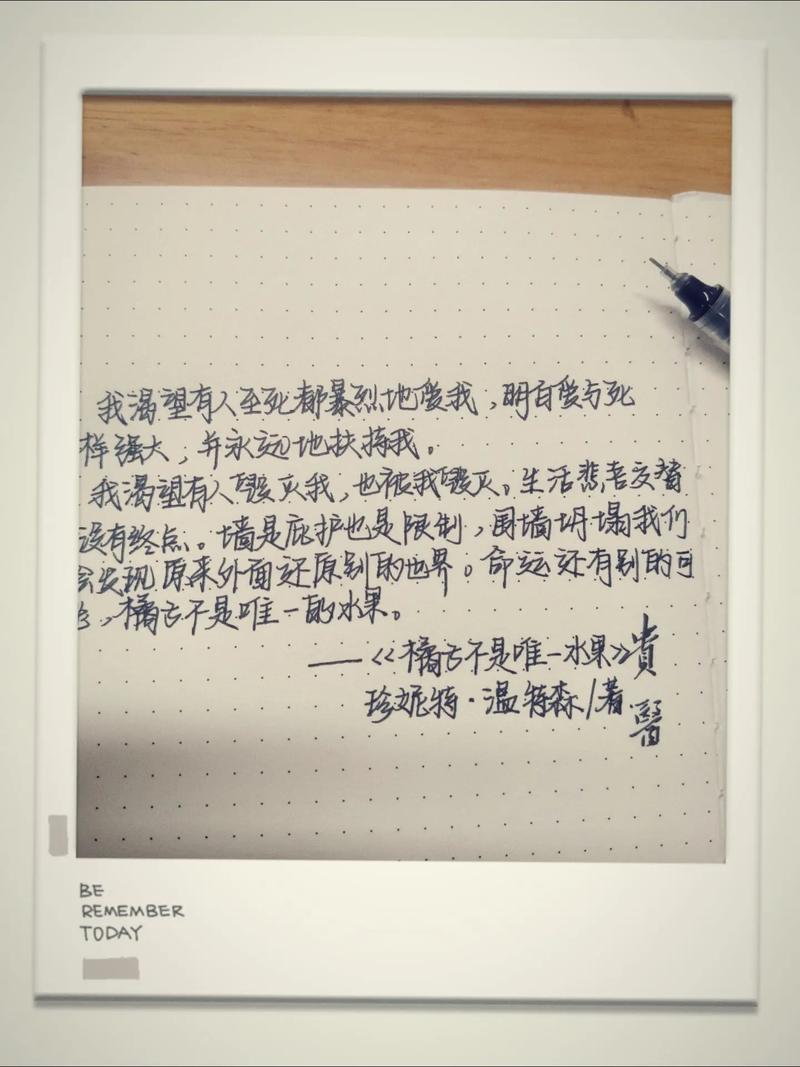 我渴望有人至死都暴烈地爱我，明白爱与死
样强大，并永远地扶持我。
我渴望有人毁灭我，也被我毁灭。生活悲喜交替
没有终点。墙是庇护也是限制，围墙坍塌我们
会发现原来外面还原别的世界。命运还有别的可
，橘子不是唯一的水果。
——《橘子不是唯一水果》
珍妮特·温特森/著
BE
REMEMBER
TODAY